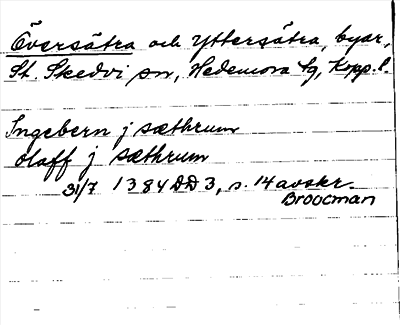 Översätra och Yttersätra, byar,
St. Skedvi sn, Hedemora tg, Kopp. l.
Ingebern j sæthrum
olaff j sæthrum
31/7 1384 DD 3, s. 14 avskr.
Broocman